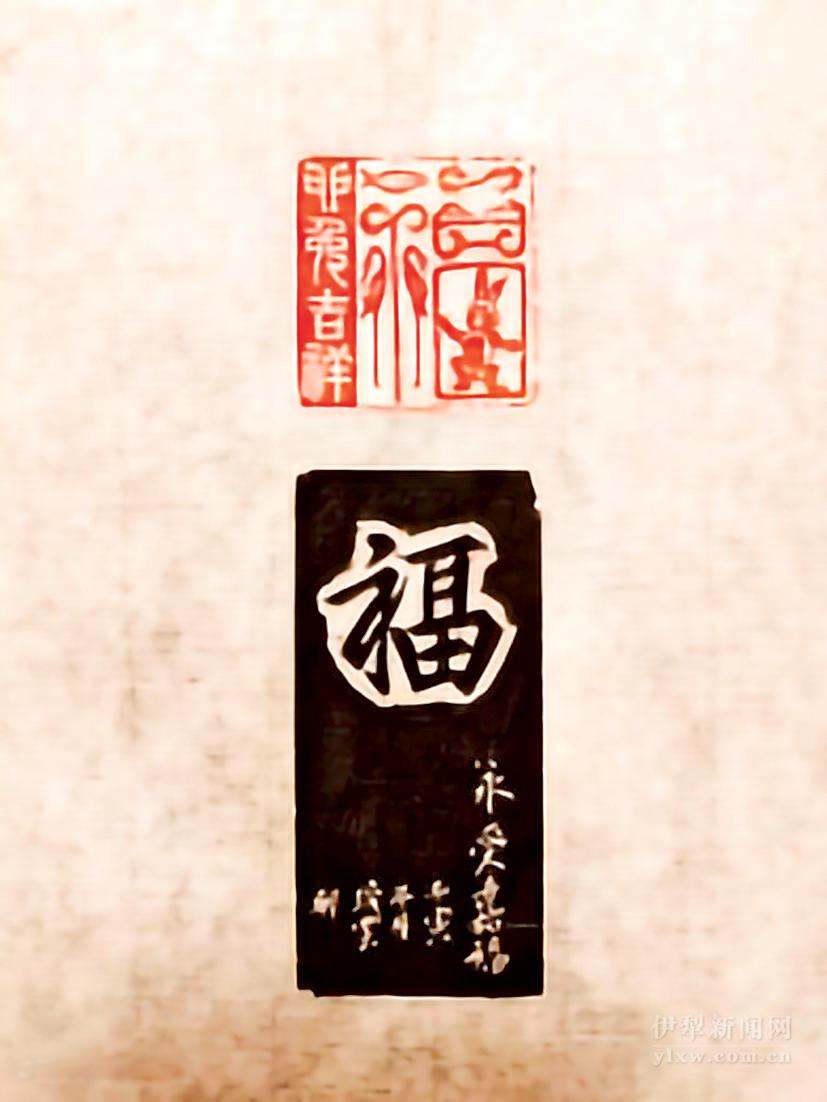 福
卯兔吉祥
福
永受嘉福
伊犁新闻网
ylxw.com.cn